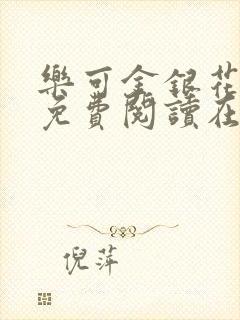 樂可金銀花
免費閱讀在
倪萍